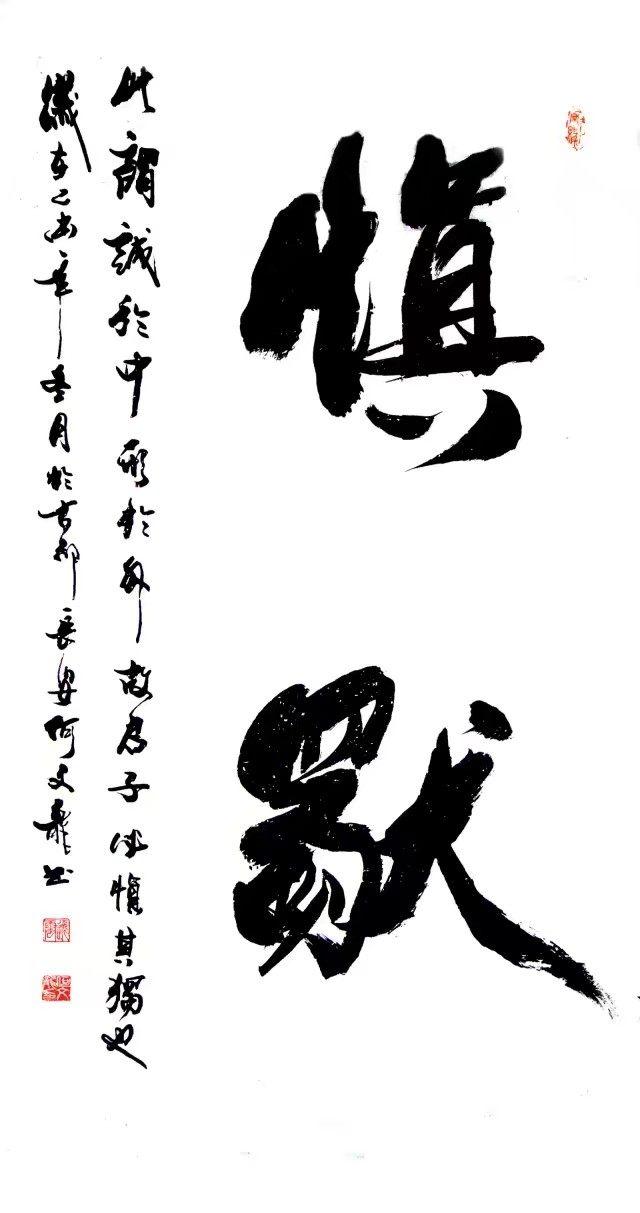 慎
獨
此謂誠於中形於外故君子必慎其獨也
歲在乙酉年冬月於古都長安何文龍書